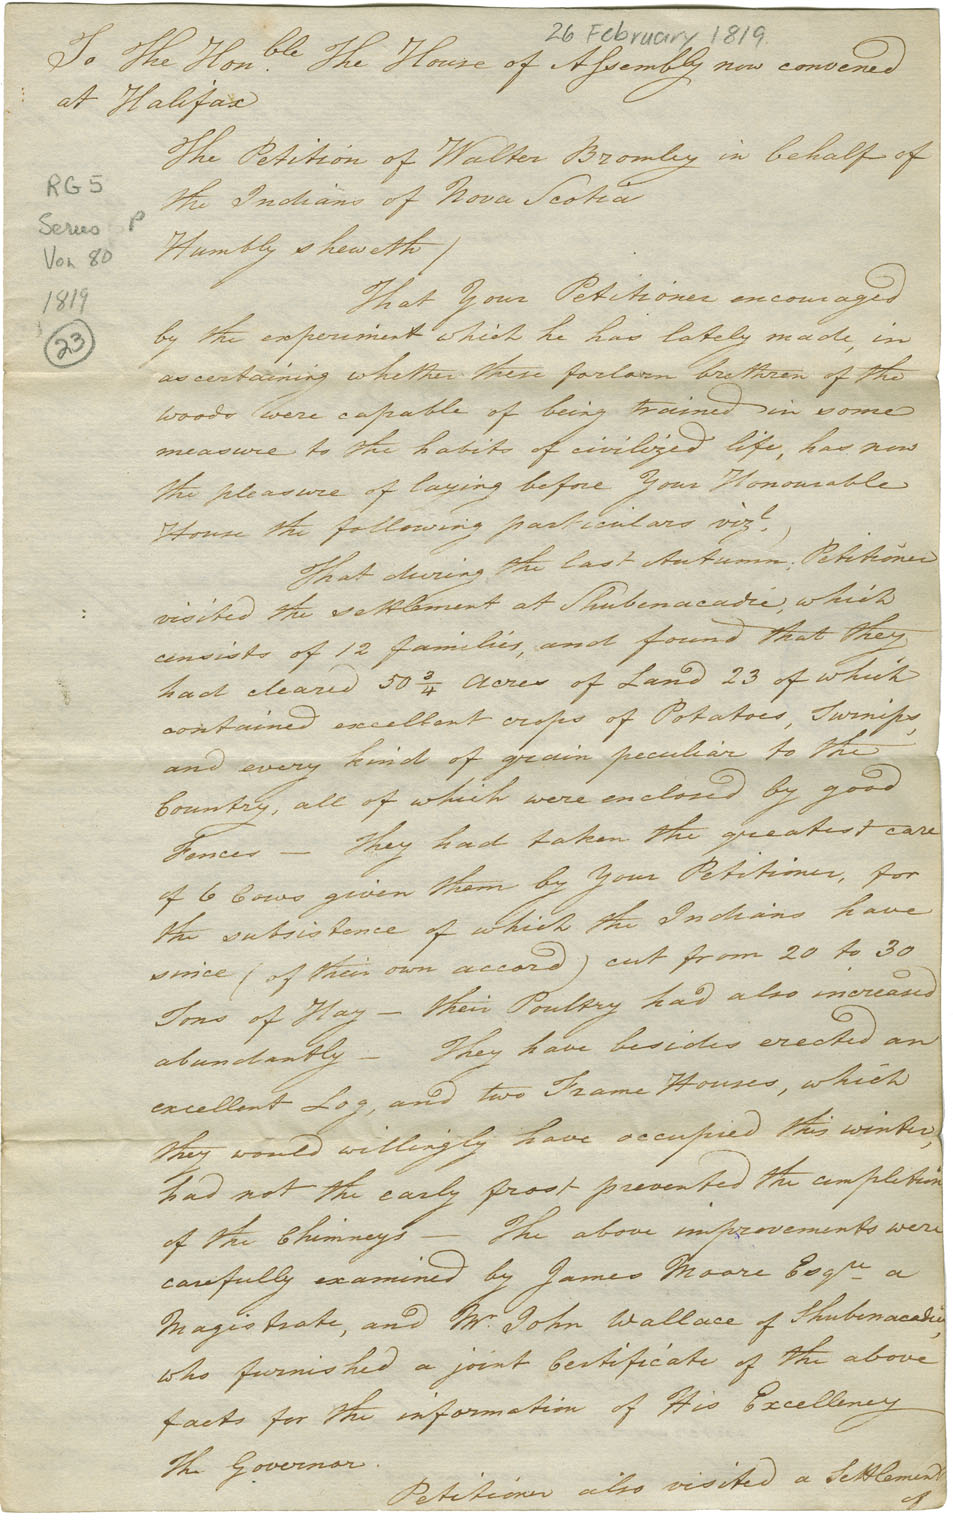 26 February 1819.
To The Honble. The House of Assembly now convened
at Halifax
The Petition of Walter Bromley in behalf of
the Indians of Nova Scotia
RG 5
Series P
Vol 80
1819
23
Humbly sheweth /
That Your Petitioner encouraged
by the experiment which he has lately made, in
ascertaining whether these forlorn brethren of the
woods were capable of being trained in some
measure to the habits of civilized life, has now
the pleasure of laying before Your Honourable
House the following particulars vizt.
That during the last Autumn, Petitioner
visited the settlement at Shubenacadie, which
consists of 12 families, and found that they
had cleared 50 3/4 Acres of Land 23 of which
contained excellent crops of Potatoes, Turnips,
and every kind of grain peculiar to the
Country, all of which were enclosed by good
Fences — They had taken the greatest care
of 6 Cows given them by Your Petitioner, for
the subsistence of which the Indians have
since (of their own accord) cut from 20 to 30
Tons of Hay — their Poultry had also increased
abundantly — They have besides erected an
excellent Log, and two Frame Houses, which
they would willingly have occupied this winter,
had not the early frost prevented the completion
of the Chimneys — The above improvements were
carefully examined by James Moore Esqre a
Magistrate, and Mr. John Wallace of Shubenacadie,
who furnished a joint Certificate of the above
facts for the information of His Excellency
the Governor.
Petitioner also visited a Settlement
of